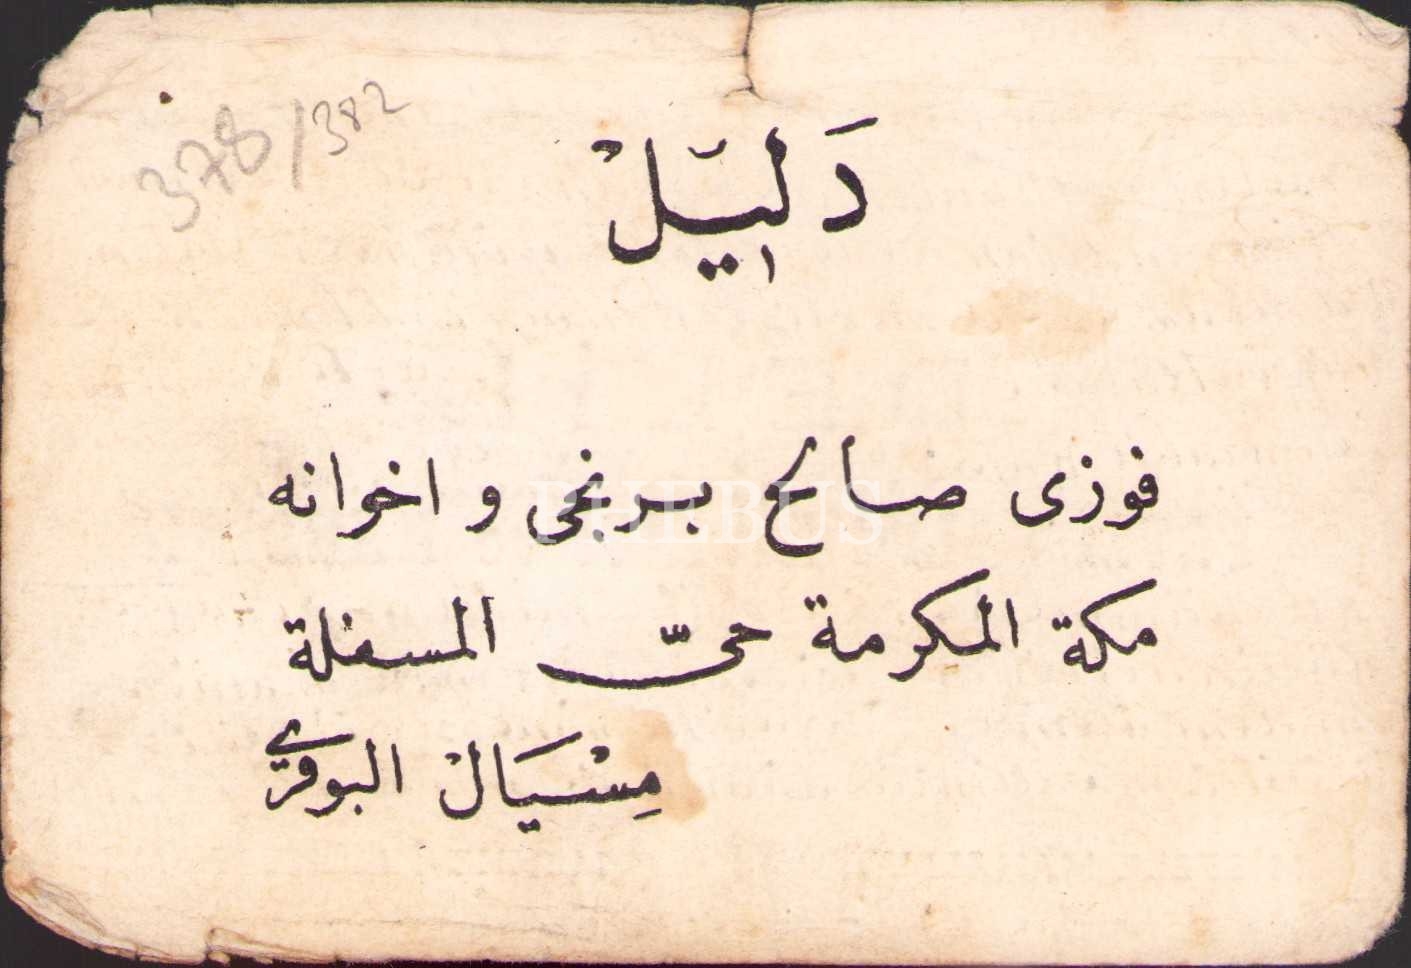 378/382
دَلِيّلْ
فوزى صالح برنجى و اخوانه
مكة المكرمة حىّ المسفلة
مِسْيَالْ البوقرى
PHEBUS